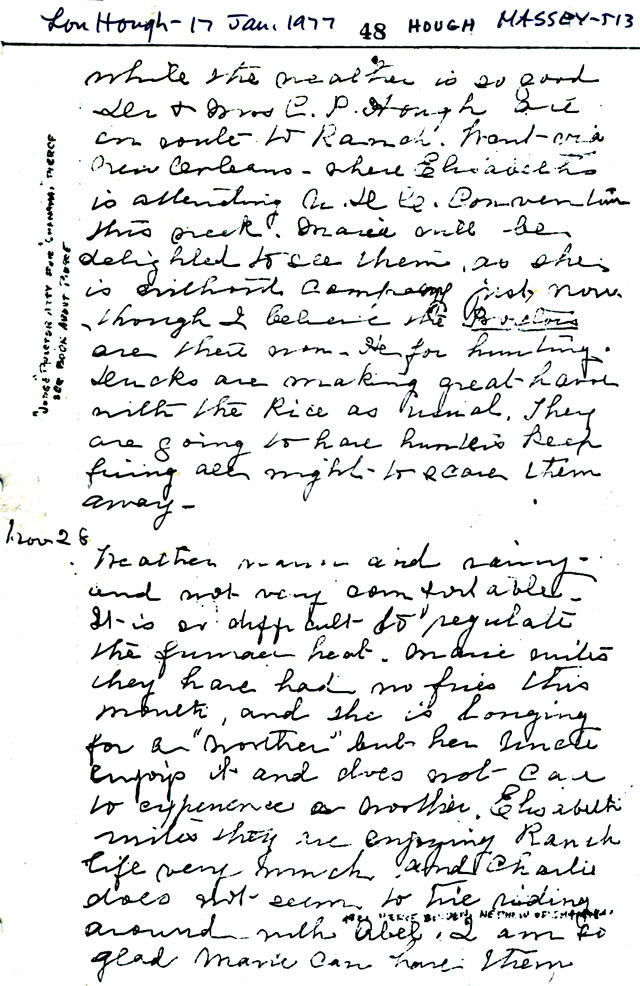 Lou Hough - 17 Jan. 1977 48 HOUGH MASSEY-513
while the weather is so good
Dr & Mrs C. P. Hough are
en route to Ranch. Went via
New Orleans - where Elizabeth
is attending U. D. C. Convention
this week. Marie will be
delighted to see them, as she
is without Company just now.
though I believe the
are there now - He for hunting.
Ducks are making great havoc
with the Rice as usual. They
are going to have hunters keep
firing all night to scare them
away -
SEE BOOK ABOUT PIERCE
Nov. 28
Weather warm and rainy -
and not very comfortable -
It is so difficult to regulate
the furnace heat. Marie writes
they have had no fires this
month, and she is longing
for a "Norther" but her Uncle
enjoys it and does not care
to experience a Norther. Elizabeth
writes they are enjoying Ranch
life very much and Charlie
does not seem to tire riding
ABEL PIERCE BORDEN, NEPHEW OF SHANGHAI.
around with Abel. I am so
glad Marie can have them